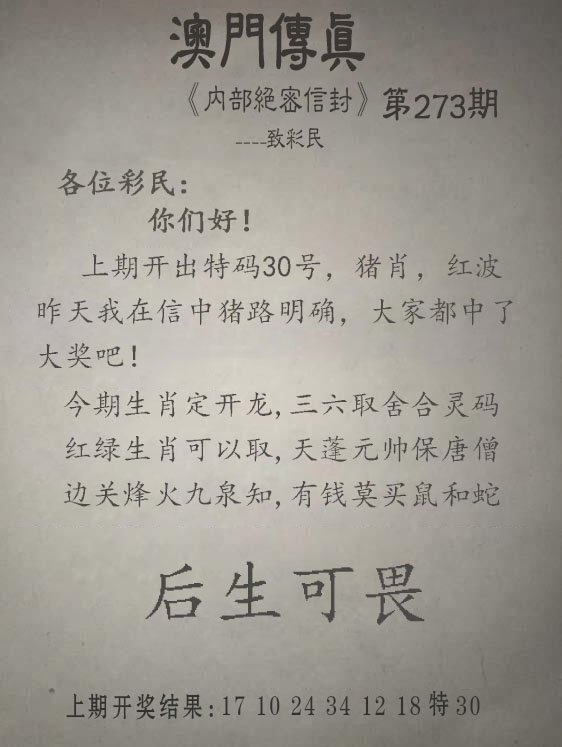 澳門傳眞
《内部絕密信封》第273期
----致彩民
各位彩民:
你们好!
上期开出特码30号，猪肖，红波
昨天我在信中猪路明确，大家都中了
大奖吧!
今期生肖定开龙,三六取舍合灵码
红绿生肖可以取,天蓬元帅保唐僧
边关烽火九泉知,有钱莫买鼠和蛇
后生可畏
上期开奖结果:17 10 24 34 12 18特30